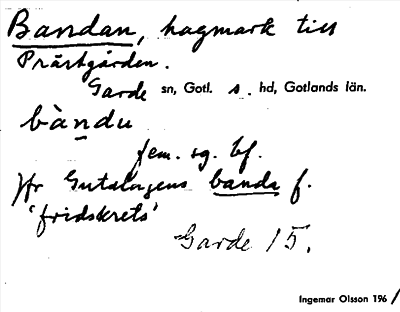 Bandan, hagmark till
Prästgården.
Garde sn, Gotl. s. hd, Gotlands län.
bàndu
fem. sg. bf.
Jfr Gutalagens banda f.
'fridskrets'
Garde 15.
Ingemar Olsson 196/